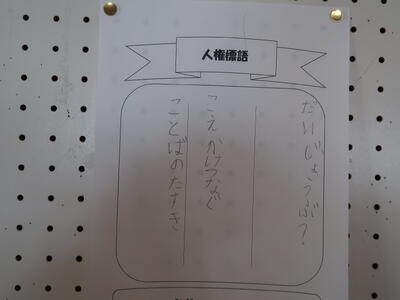 人権標語
だいじょうぶ?
こえかけつなぐ
ことばのたすき